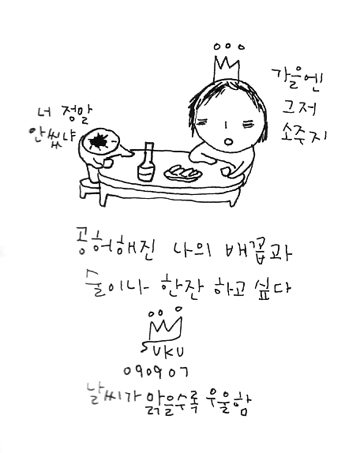 가을엔
그저
소주지
너 정말
안씻냐
공허해진 나의 배꼽과
술이나 한잔 하고 싶다
SUKU
090907
날씨가 맑을수록 우울함